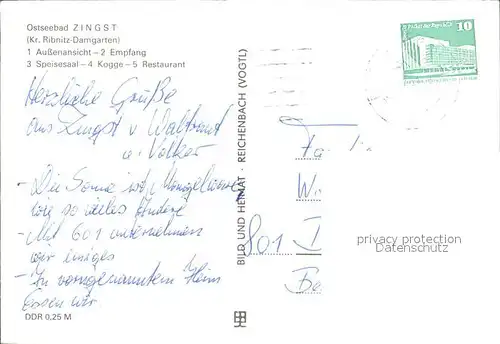 Ostseebad ZINGST
(Kr. Ribnitz-Damgarten)
1 Außenansicht – 2 Empfang
3 Speisesaal – 4 Kogge – 5 Restaurant
Herzliche Grüße
aus Zingst v Waltraut
u. Volker
- Die Sonne ist Mangelware
wie so vieles Andere
- Mit 601 unternehmen
wir einiges
- In vorgenanntem Heim
Essen wir
DDR 0,25 M
BILD UND HEIMAT · REICHENBACH (VOGTL)
10
Fa
W
801 I
Be
privacy protection
Datenschutz